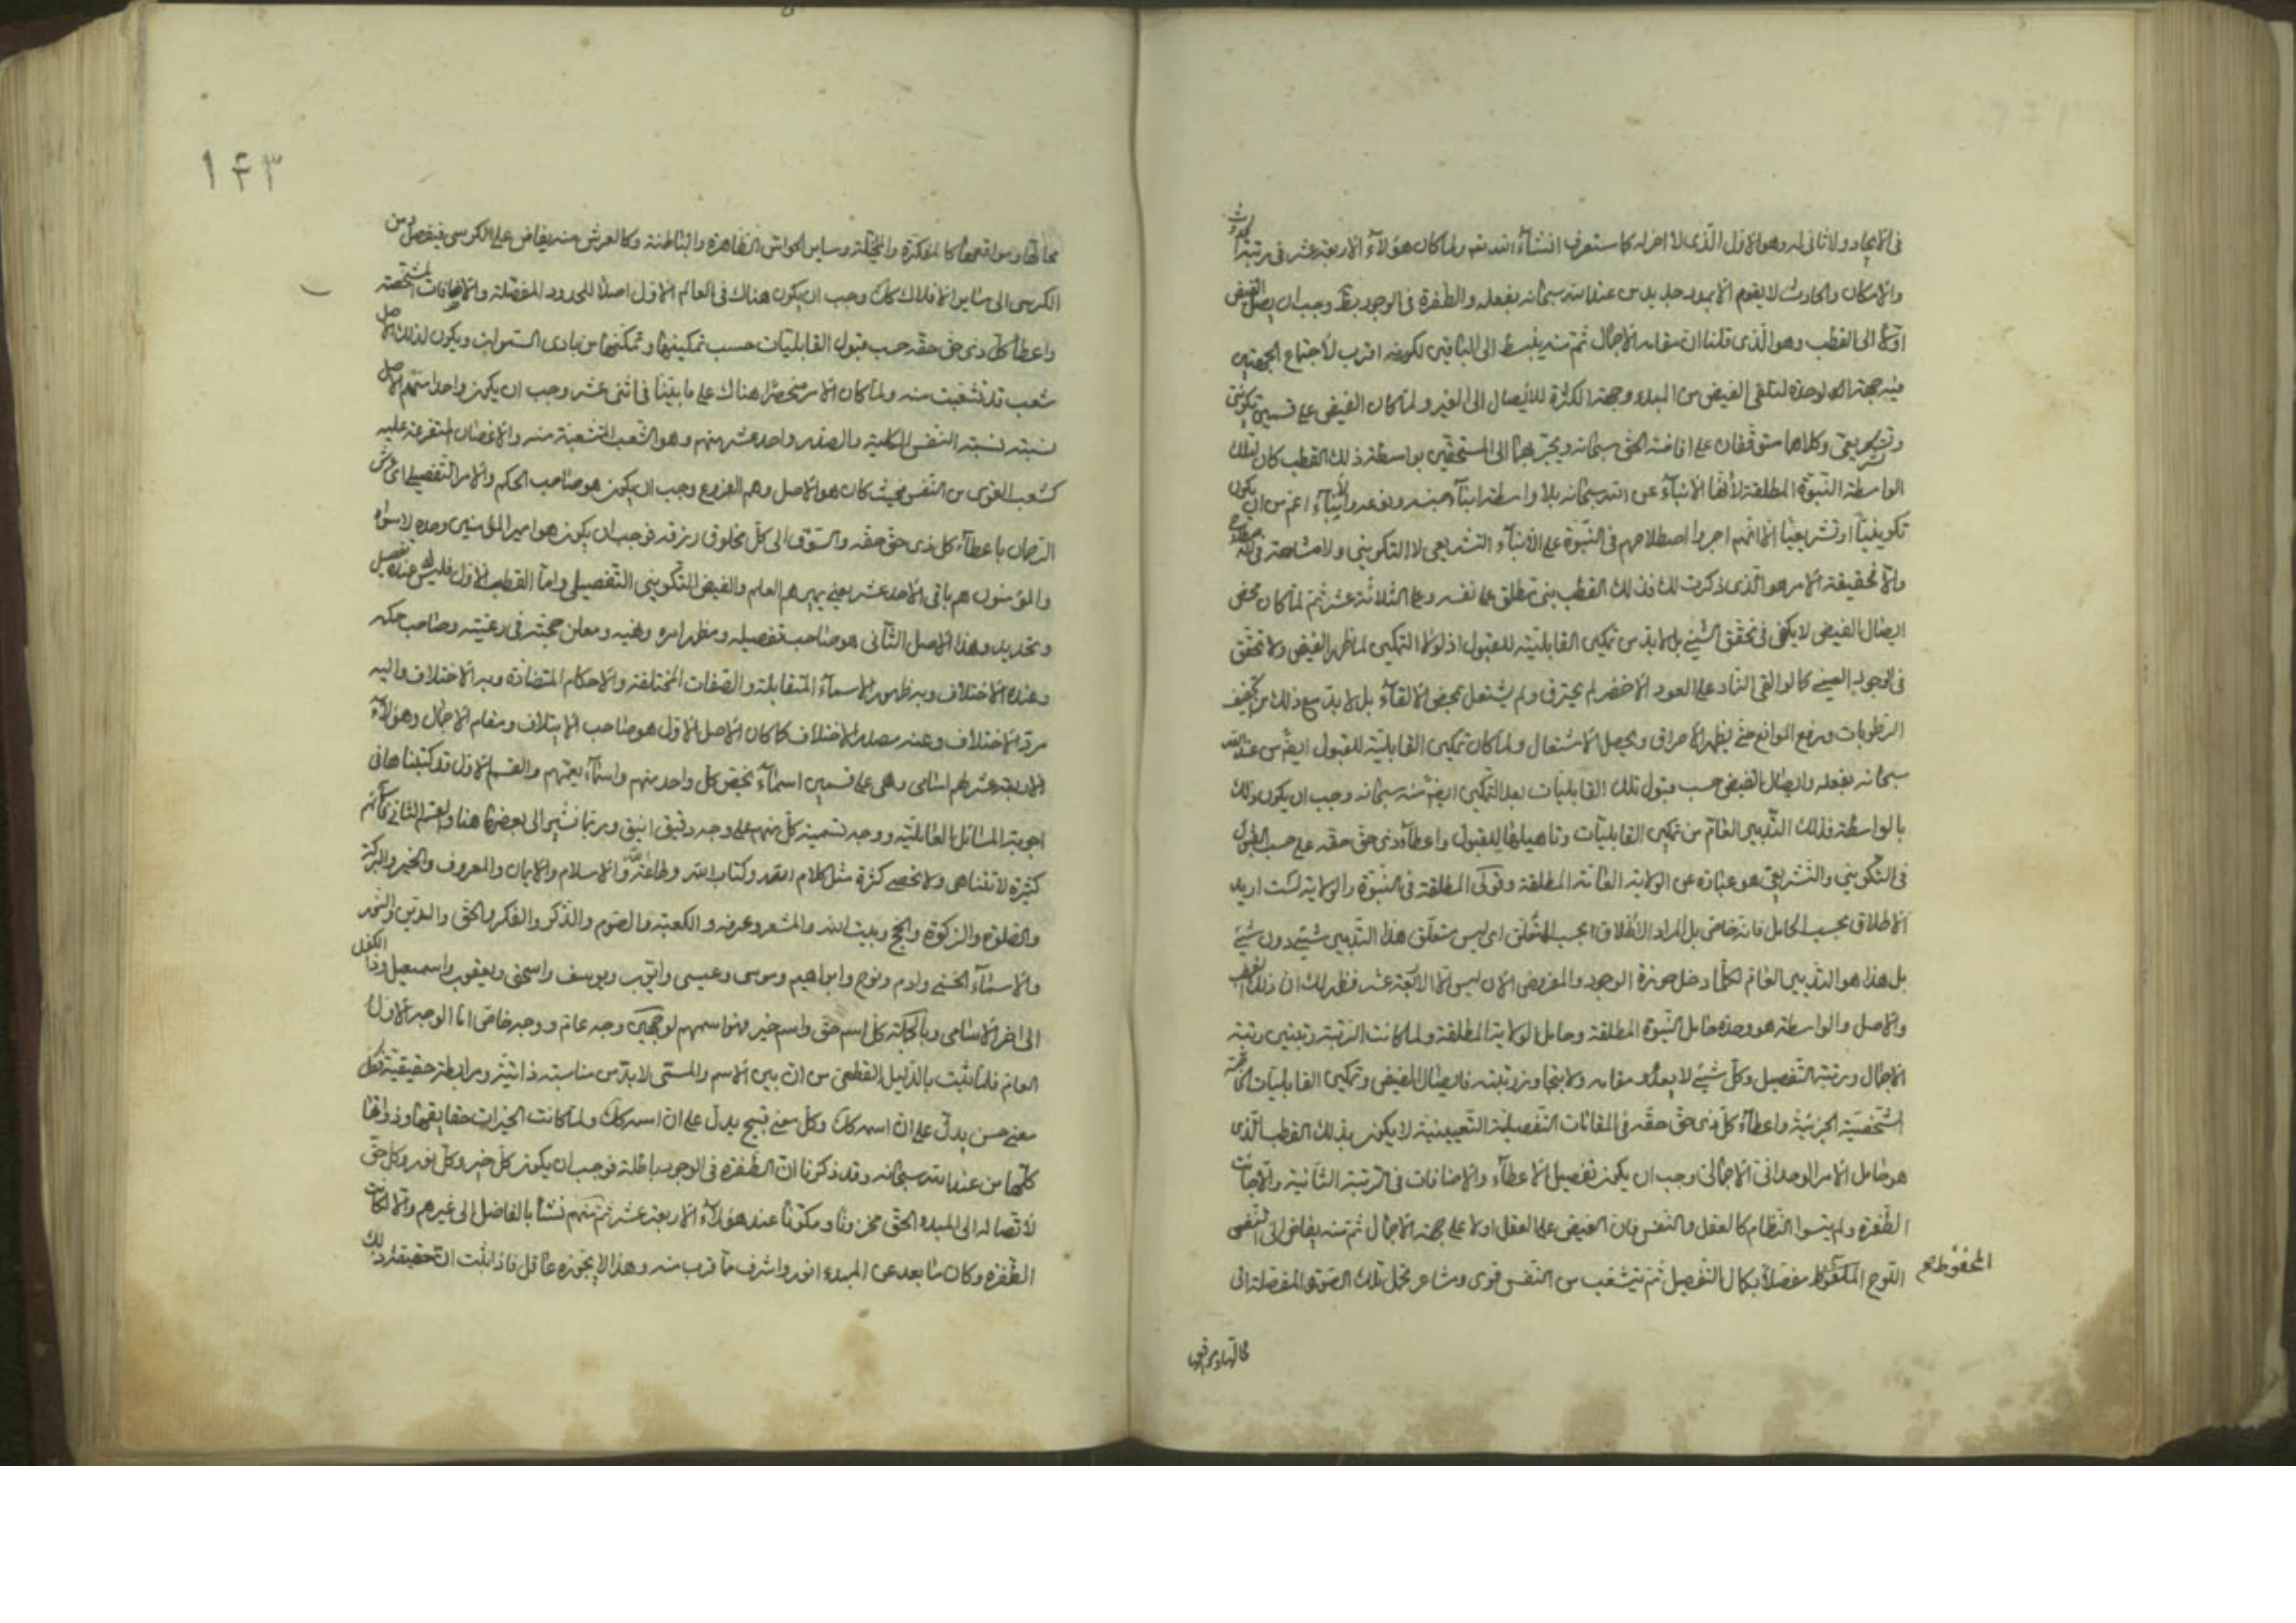 في الايجاد ولا ثاني له وهو الاول الذي لا اخر له كما ستعرف انشاء الله تعالى ولما كان هؤلاء الاربعة عشر في رتبة الحدوث
والامكان والحادث لا يقوم الا بمدد جديد من عند الله سبحانه بفعله والطفرة في الوجود بط وجب ان يصل الفيض
اولا الى القطب وهو الذي قلنا ان مقامه الاجمال ثم منه ينبسط الى الباقين لكونه اقرب لاجتماع الجهتين
فيه جهة الوحدة لتلقي الفيض من المبدء وجهة الكثرة للايصال الى الغير ولما كان الفيض على قسمين تكويني
وتشريعي وكلاهما متوقفان على افاضة الحق سبحانه ويجريهما الى المستحقين بواسطة ذلك القطب كان تلك
الواسطة النبوة المطلقة لانها الانباء عن الله سبحانه بلا واسطة انباء اعم من ان يكون
تكوينيا او تشريعيا الا انهم اجروا اصطلاحهم في النبوة على الانباء التشريعي لا التكويني ولا مشاحة في
والا فحقيقة الامر هو الذي ذكرت لك فذلك القطب نبي مطلق على نفسه وعلى الثلاثة عشر ثم لما كان محض
ايصال الفيض لا يكفي في تحقق الشيء بل لا بد من تمكين القابلية للقبول اذ لولا التمكين لما ظهر الفيض ولا تحقق
في الوجود العيني كما لو القي النار على العود الاخضر لم يحترق ولم يشتعل بمحض الالقاء بل لا بد مع ذلك من تجفيف
الرطوبات ورفع الموانع حتى يظهر الاحراق ويحصل الاشتعال ولما كان تمكين القابلية للقبول ايضا من عند الله
سبحانه بفعله وايصال الفيض حسب قبول تلك القابليات بعد التمكين ايضا منه سبحانه وجب ان يكون ذلك
بالواسطة فذلك التدبير العام من تمكين القابليات وتاهيلها للقبول واعطاء ذي حق حقه على حسب القبول
في التكويني والتشريعي هو عبارة عن الولاية العامة المطلقة وقولي المطلقة في النبوة والولاية لست اريد
الاطلاق بحسب الحامل فانه خاص بل المراد الاطلاق بحسب المتعلق اي ليس متعلق هذا التدبير شيء دون شيء
بل هذا هو التدبير العام لكلما دخل حوزة الوجود والمفروض الان ليس الا الاربعة عشر فظهر لك ان ذلك القطب
والاصل والواسطة هو وحده حامل النبوة المطلقة وحامل الولاية المطلقة ولما كانت الرتبة رتبتين رتبة
الاجمال ورتبة التفصيل وكل شيء لا يعدو مقامه ولا يتجاوز رتبته فايصال الفيض وتمكين القابليات الخاصة
الشخصية الجزئية واعطاء كل ذي حق حقه في المقامات التفصيلية التعيينية لا يكون بذلك القطب الذي
هو حامل الامر الوحداني الاجمالي وجب ان يكون تفصيل الاعطاء والاضافات في الرتبة الثانية والا جاءت
الطفرة ولم يتسق النظام كالعقل والنفس فان الفيض على العقل اولا على جهة الاجمال ثم منه يفاض الى النفس
اللوح المحفوظ مفصلا بكمال التفصيل ثم تتشعب من النفس قوى ومشاعر تحمل تلك الصور المفصلة الى
المحفوظ
محالها ومواقعها
١٤٣
محالها ومواقعها كالمفكرة والمخيلة وساير الحواس الظاهرة والباطنة وكالعرش منه يفاض على الكرسي فيفصل من
الكرسي الى ساير الافلاك كك وجب ان يكون هناك في العالم الاول اصلا للحدود المفصلة والاضافات المشخصة
واعطاء كل ذي حق حقه حسب قبول القابليات حسب تمكينها وتمكنها من بادي السموات ويكون لذلك الاصل
شعب قد تشعبت منه ولما كان الامر منحصرا هناك على ما بينا في اثنى عشر وجب ان يكون واحدا منهم الاصل
نسبته نسبة النفس الكلية والصدر واحد عشر منهم وهو الشعب المتشعبة منه والاغصان المتفرعة عليه
كشعب القوى من النفس فحيث كان هو الاصل وهم الفروع وجب ان يكون هو صاحب الحكم والامر التفصيلي اي عرش
الرحمان باعطاء كل ذي حق حقه والسوق الى كل مخلوق رزقه فوجب ان يكون هو امير المؤمنين وحده لا سواه
والمؤمنون هم باقي الاحد عشر يعني يميرهم العلم والفيض التكويني التفصيلي واما القطب الاول فليس عنده تفصيل
وتحديد وهذا الاصل الثاني هو صاحب تفصيله ومظهر امره ونهيه ومعلن حجته في رعيته وصاحب حكمه
وعنده الاختلاف وبه ظهور الاسماء المتقابلة والصفات المختلفة والاحكام المتضادة وبه الاختلاف واليه
مرد الاختلاف وعنه مصدر الاختلاف كما كان الاصل الاول هو صاحب الايتلاف ومقام الاجمال وهؤلاء
الاربعة عشر لهم اسامي وهي على قسمين اسماء تخص كل واحد منهم واسماء يعمهم والقسم الاول قد كتبناها في
اجوبة المسائل العاملية ووجه تسمية كل منهم على وجه دقيق انيق وربما نشير الى بعضها هنا والقسم الثاني
كثيرة لا تتناهى ولا تحصى كثرة مثل كلام الله وكتاب الله وطاعة الله والاسلام والايمان والمعروف والخير والبركة
والصلوة والزكوة والحج وبيت الله والمشعر وعرفة والكعبة والصوم والذكر والفكر والحق والدين والنور
والاسماء الحسنى وادم ونوح وابراهيم وموسى وعيسى وايوب ويوسف واسحق ويعقوب واسمعيل وذا الكفل
الى اخر الاسامي وبالجملة كل اسم حق واسم خير فهو اسمهم لوجهين وجه عام ووجه خاص اما الوجه الاول
العام فلما ثبت بالدليل القطعي من ان بين الاسم والمسمى لا بد من مناسبة ذاتية ومرابطة حقيقية فكل
معنى حسن يدل على ان اسمه كك وكل معنى قبيح يدل على ان اسمه كك ولما كانت الخيرات حقايقها وذواتها
كلها من عند الله سبحانه وقد ذكرنا ان الطفرة في الوجود باطلة فوجب ان يكون كل خير وكل نور وكل حق
لاتصاله الى المبدء الحق مخزونا ومكنونا عند هؤلاء الاربعة عشر ثم منهم نشا بالفاضل الى غيرهم والا لكانت
الطفرة وكان ما بعد عن المبدء انور واشرف مما قرب منه وهذا لا يجوزه عاقل فاذا ثبت ان حقيقة ذلك